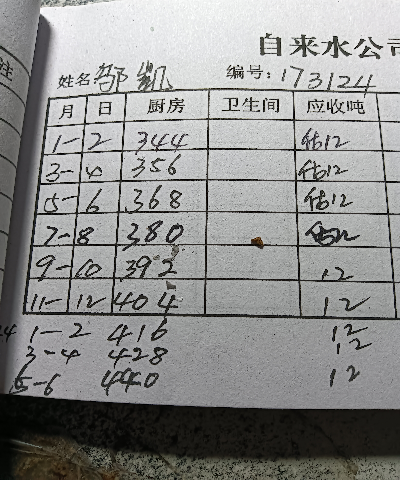 注
自来水公司
姓名 邬凯 编号:173124
月 日 厨房 卫生间 应收吨
1-2 344 估12
3-4 356 估12
5-6 368 估12
7-8 380 估12
9-10 392 12
11-12 404 12
1-2 416 12
3-4 428 12
5-6 440 12